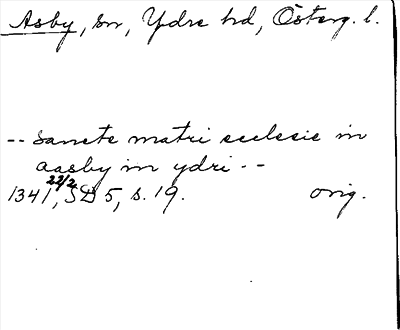 Asby, sn, Ydre hd, Österg. l.
-- sancte matri ecclesie in
aasby in ydri --
1341 22/2, SD 5, s. 19. orig.